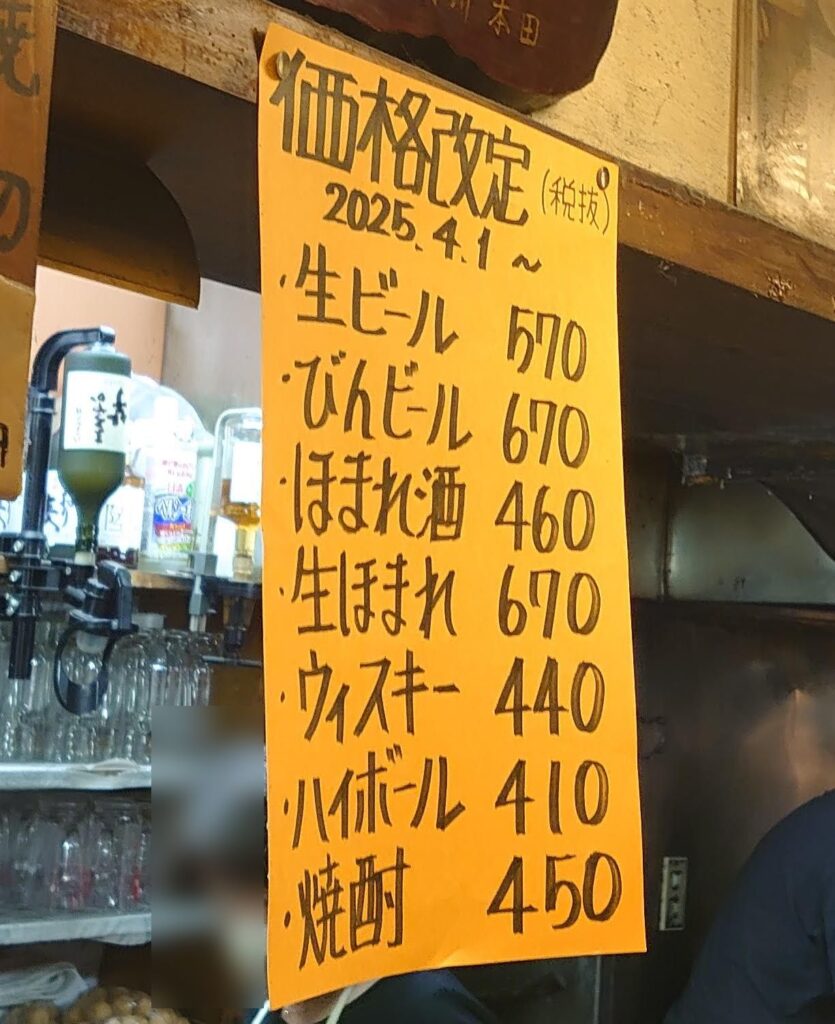 価格改定(税抜)
2025.4.1〜
・生ビール 570
・びんビール 670
・ほまれ酒 460
・生ほまれ 670
・ウィスキー 440
・ハイボール 410
・焼酎 450
本田
の